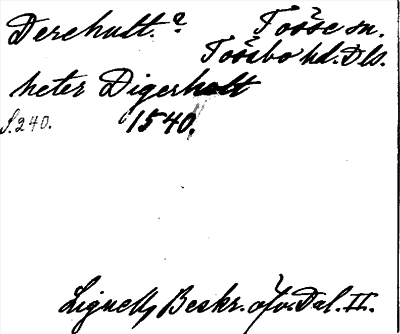 Derehult. a Tösse sn.
Tössbo hd. Dls.
heter Digerhult
S. 240. 1540.
Lignell, Beskr. öfv. Dal. II.